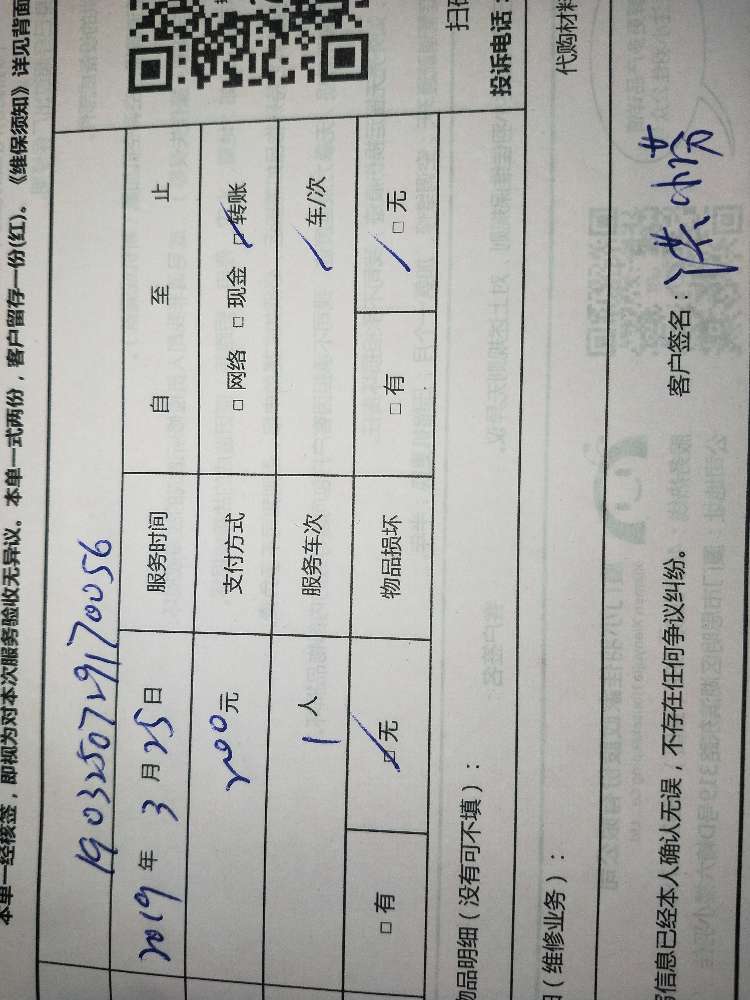 本单一经核签，即视为对本次服务验收无异议。本单一式两份，客户留存一份(红)。《维保须知》详见背面
1903250729170056
2019 年 3 月 25 日 服务时间 自 至 止
200 元 支付方式 □ 网络 □ 现金 □ 转账
1 人 服务车次 / 车/次
□ 有 □ 无 物品损坏 □ 有 □ 无
物品明细（没有可不填）：
投诉电话：
（维修业务）：
代购材料
信息已经本人确认无误，不存在任何争议纠纷。
客户签名：洪小芬